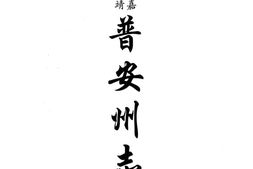 嘉靖
普安州志